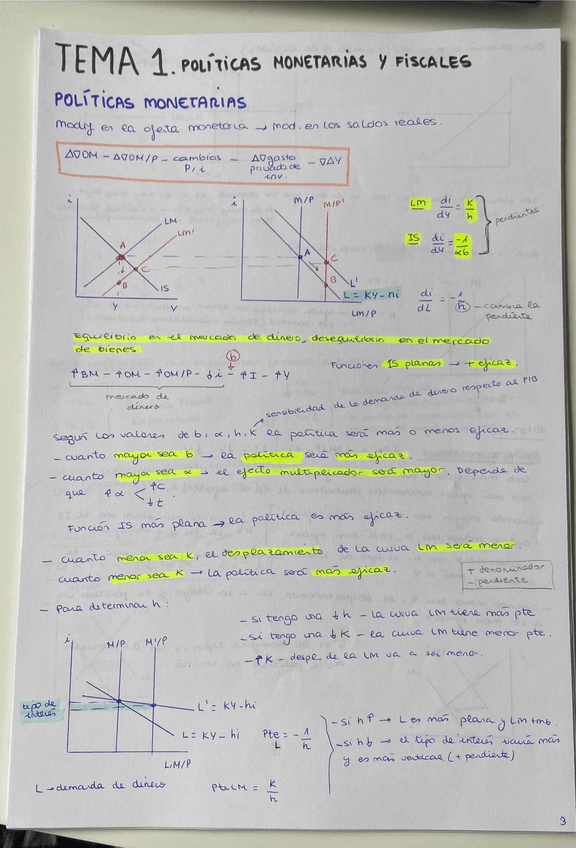 TEMA 1. POLÍTICAS MONETARIAS Y FISCALES
POLÍTICAS MONETARIAS
Modif en la oferta monetaria → mod. en los saldos reales.
Δ∇OM - Δ∇OM/P - cambios P, i - Δ∇gasto privado de inv. - ∇ΔY
i
LM
LM'
A
C
B
IS
Y
Y
i
M/P
M/P'
A
C
B
L'
L = KY - hi
LM/P
LM di/dY = K/h
IS di/dY = -1/αb
pendientes
di/dL = -1/h - cambia la pendiente
Equilibrio en el mercado de dinero, desequilibrio en el mercado
de bienes
Funciones IS planas → + eficaz.
b
↑BM - ↑OM - ↑OM/P - ↓i - ↑I - ↑Y
mercado de
dinero
sensibilidad de la demanda de dinero respecto al PIB
Según los valores de b, α, h, k la política será más o menos eficaz.
- cuanto mayor sea b → la política será más eficaz.
- cuanto mayor sea α → el efecto multiplicador será mayor. Depende de
que ↑α < ↑c
↓t.
Función IS más plana → la política es más eficaz.
- cuanto menor sea K, el desplazamiento de la curva LM será menor.
cuanto menor sea K → la política será más eficaz.
+ denominador
- pendiente
- Para determinar h:
- si tengo una ↓h - la curva LM tiene más pte
- si tengo una ↓K - la curva LM tiene menor pte.
- ↑K - despl de la LM va a ser menor.
i
M/P
M'/P
tipo de
interés
L' = KY - hi
L = KY - hi
Pte L = -1/h
L, M/P
- si h↑ → L es más plana y LM tmb.
- si h↓ → el tipo de interés varía más
y es más vertical (+ pendiente)
L → demanda de dinero
Pte LM = K/h
3